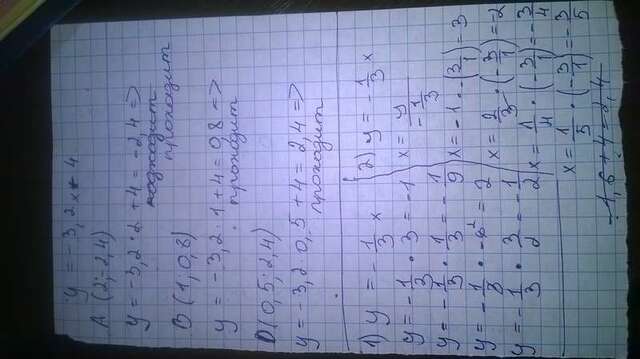 y = -3,2x+4
A (2; -2,4)
y = -3,2·2+4 = -2,4 =>
подходит
проходит
B (1; 0,8)
y = -3,2·1+4 = 0,8 =>
проходит
D (0,5; 2,4)
y = -3,2·0,5+4 = 2,4 =>
проходит
1) y = -1/3 x
y = -1/3 · 3 = -1
y = -1/3 · 1/3 = -1/9
y = -1/3 · 3/2 = -1/2
2) y = -1/3 x
x = y/(-1/3)
x = 2/3 · (-3/1) = -2
x = 1/4 · (-3/1) = -3/4
x = 1/5 · (-3/1) = -3/5
-1,6+4=2,4